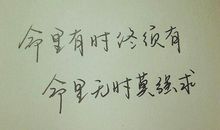 命里有时终须有
命里无时莫强求